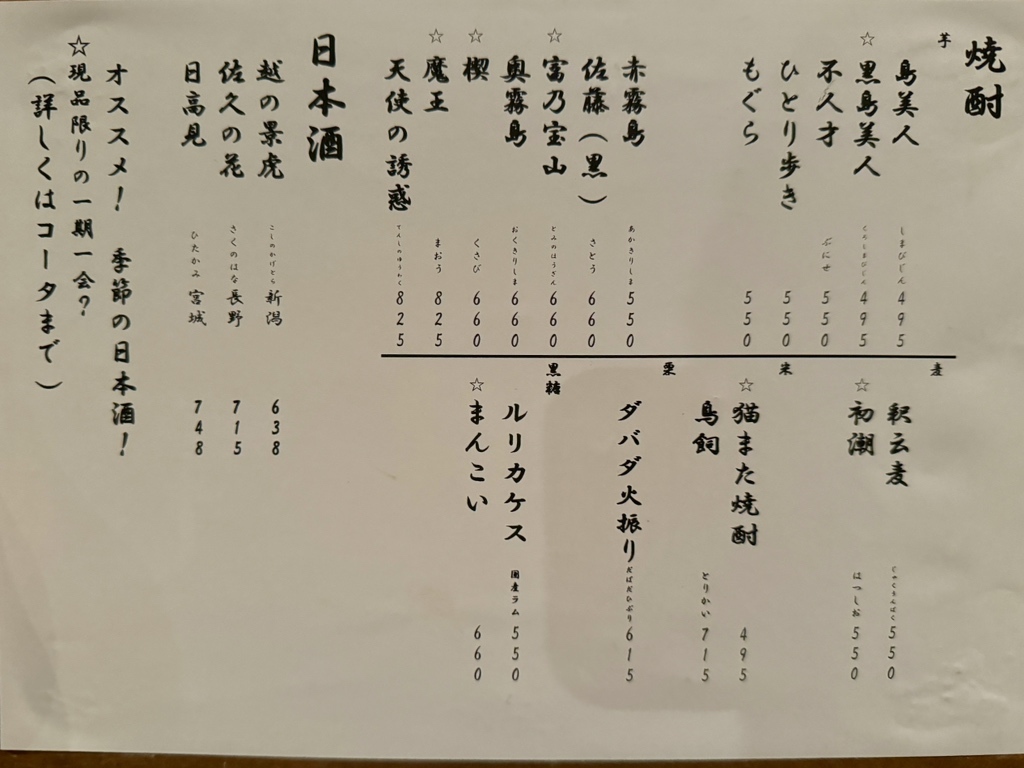 焼酎
芋
島美人 しまびじん 495
☆黒島美人 くろしまびじん 495
不人才 ぶにせ 550
ひとり歩き 550
もぐら 550
赤霧島 あかきりしま 550
佐藤(黒) さとう 660
☆富乃宝山 とみのほうざん 660
奥霧島 おくきりしま 660
☆楔 くさび 660
☆魔王 まおう 825
天使の誘惑 てんしのゆうわく 825
麦
釈云麦 じゃくうんばく 550
☆初潮 はつしお 550
米
☆猫また焼酎 495
鳥飼 とりかい 715
栗
ダバダ火振り だばだひぶり 615
黒糖
ルリカケス 国産ラム 550
☆まんこい 660
日本酒
越の景虎 こしのかげとら 新潟 638
佐久の花 さくのはな 長野 715
日高見 ひたかみ 宮城 748
オススメ! 季節の日本酒!
☆現品限りの一期一会?
(詳しくはコータまで)